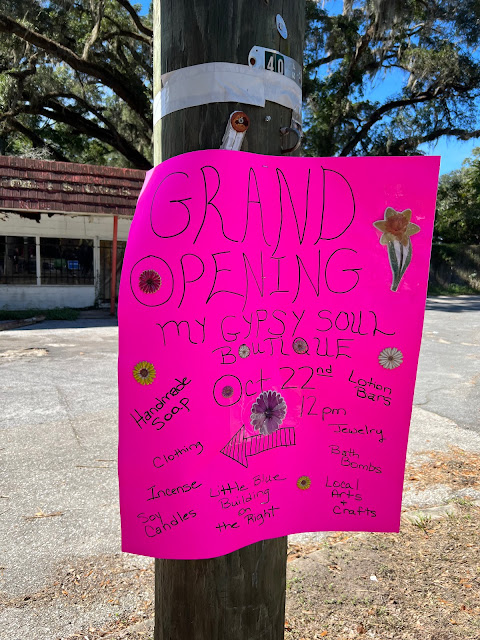 40
GRAND
OPENING
MY GYPSY SOUL
BOUTIQUE
Oct 22nd
12pm
Handmade
Soap
Clothing
Incense
Soy
Candles
Little Blue
Building
on
the Right
Lotion
Bars
Jewelry
Bath
Bombs
Local
Arts
+
Crafts